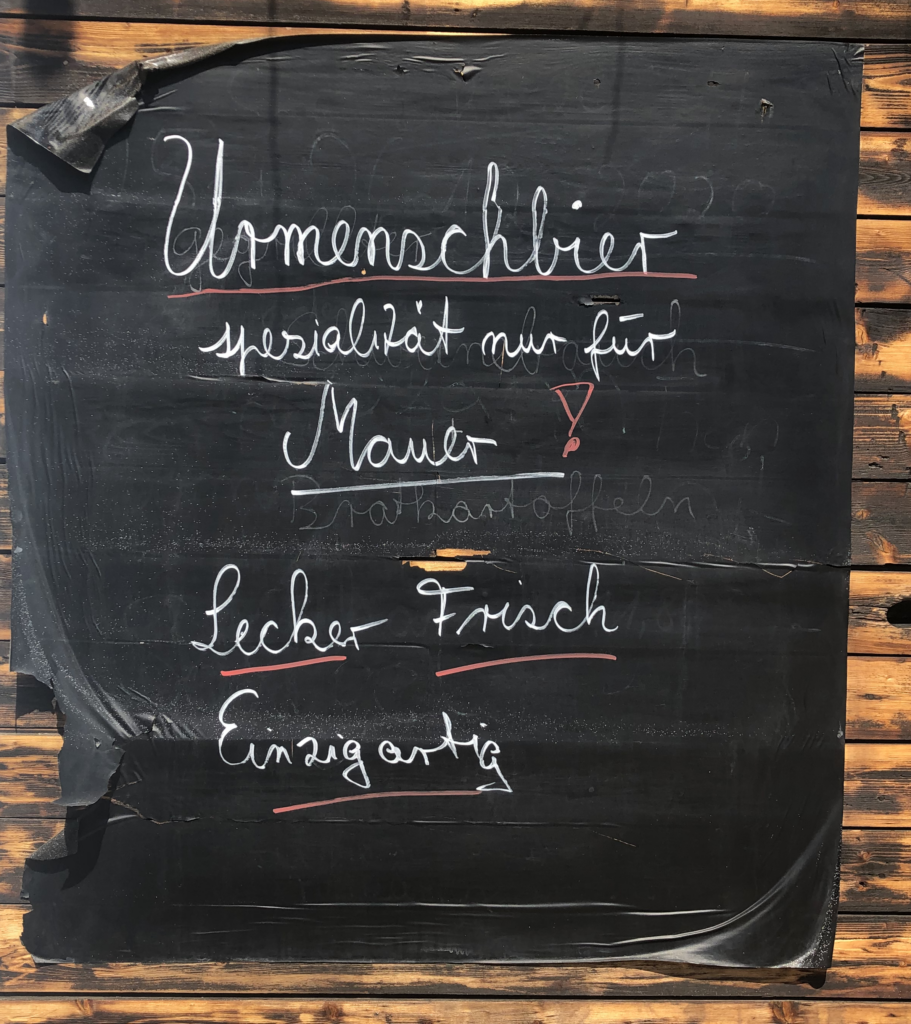 Urmenschbier
spezialität nur für
Mauer !
Bratkartoffeln
Lecker Frisch
Einzigartig